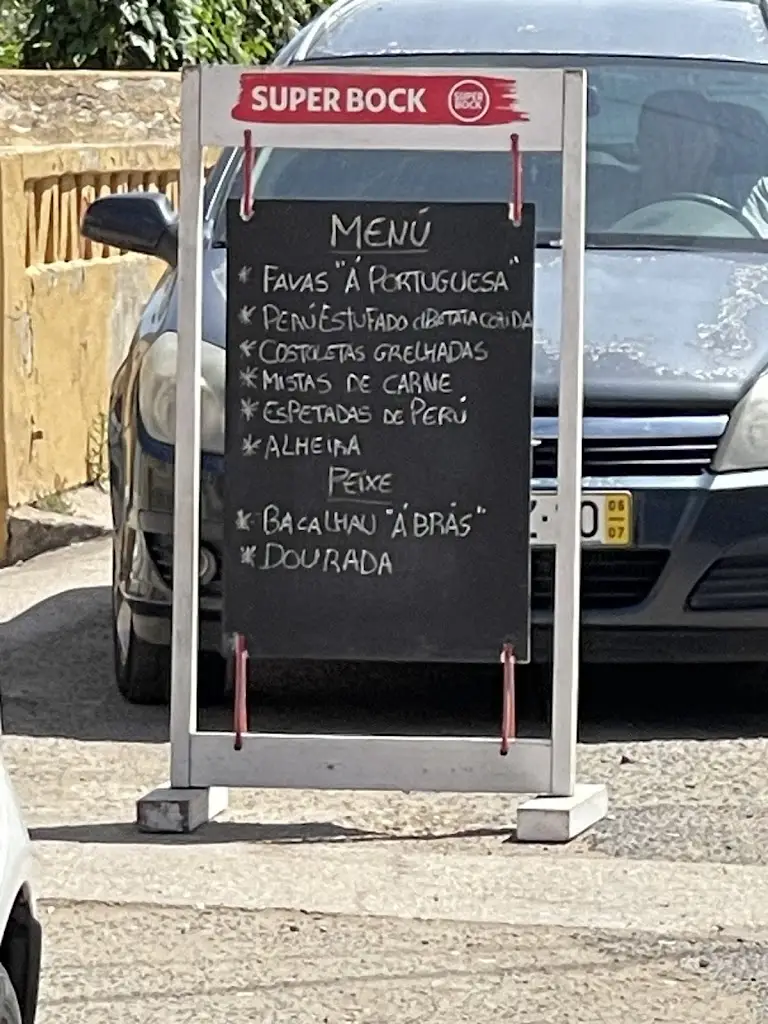 SUPER BOCK SUPER BOCK
MENÚ
* FAVAS "Á PORTUGUESA"
* PERÚ ESTUFADO C/BATATA COZIDA
* COSTOLETAS GRELHADAS
* MISTAS DE CARNE
* ESPETADAS DE PERÚ
* ALHEIRA
PEIXE
* BACALHAU "Á BRÁS"
* DOURADA
06
07